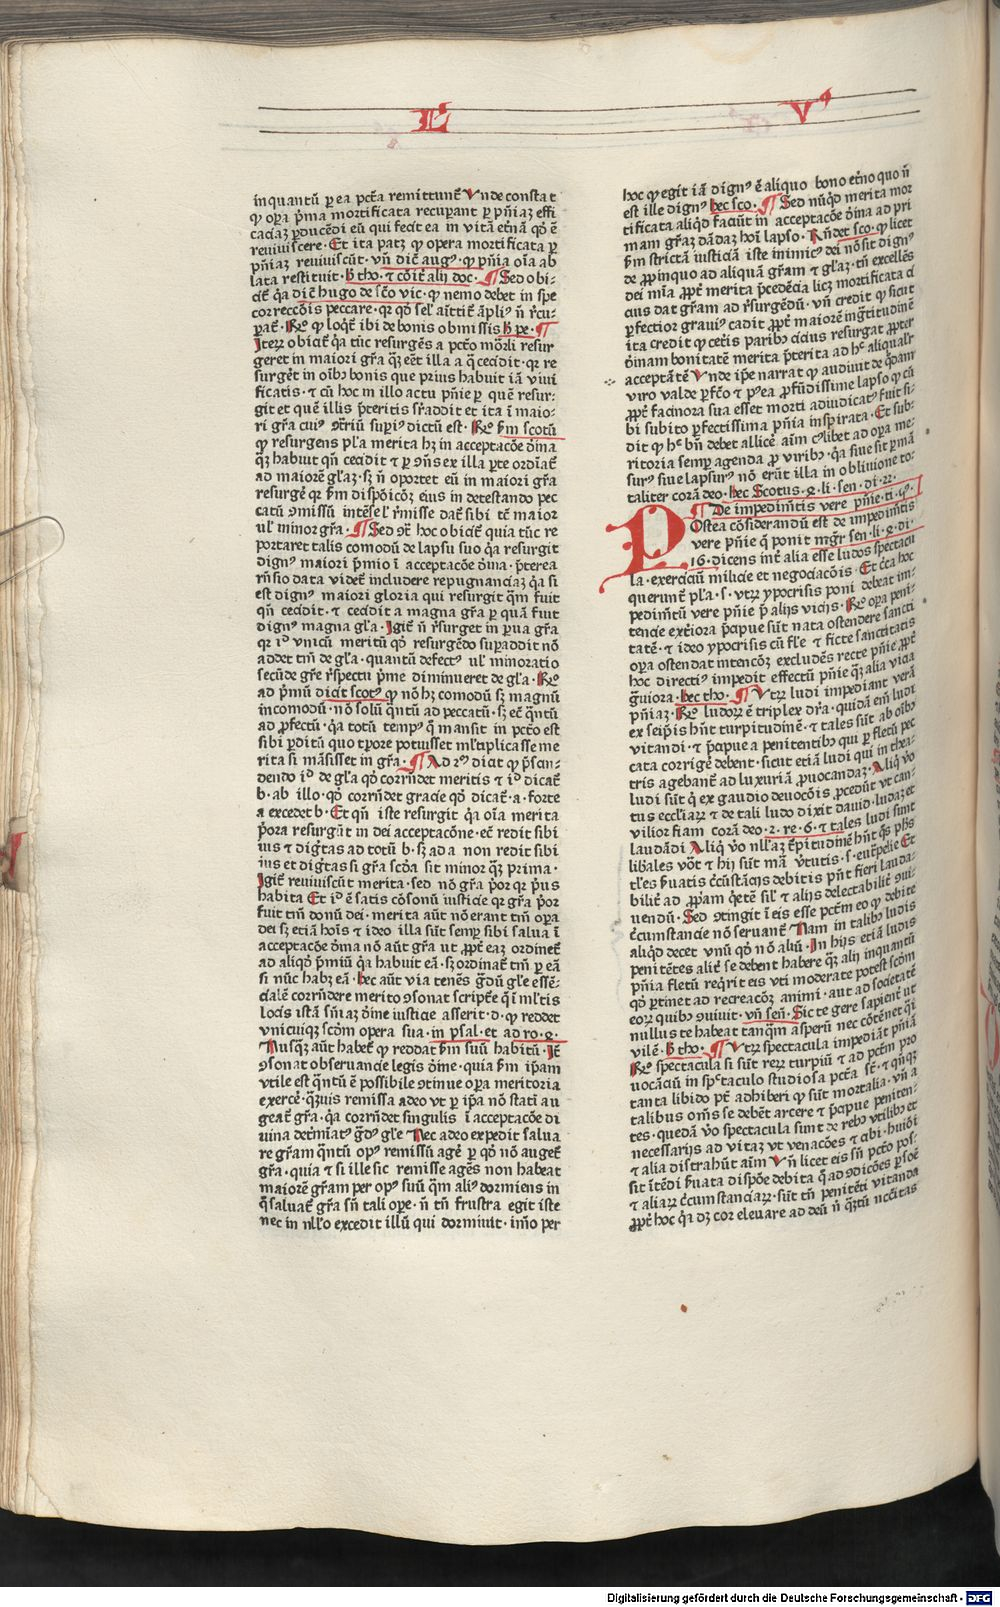 L V⁹
inquantū ꝑ ea pctā remittunt᷑ Vnde constat
ꝙ oꝑa p̄ma mortificata recuꝑant ꝑ pn̄iaꝫ effi
caciaꝫ ꝑducēdi eū qui fecit ea in vitā et̄nā qd̄ ē
reviviscere · Et ita patꝫ ꝙ opera mortificata ꝑ
pn̄iaꝫ reviviscūt · vn̄ dic̄ aug⁹ · ꝙ pn̄ia oīa ab
lata restituit · h̄ tho · ⁊ cōit̄ alij doc · ¶ Sed obi-
cit᷑ q̄a dic̄ hugo de sc̄o vic · ꝙ nemo debet in spe
correccōis peccare · qꝛ qd̄ sel̄ aīttit᷑ āpli⁹ n̄ r̄cu-
ꝑat᷑ · R̄o ꝙ loqt᷑ ibi de bonis obmissis h̄ pe · ¶
Iterꝫ obicit᷑ qa tūc resurgēs a pctō mōrli resur
geret in maiori gr̄a qꝫ eēt illa a q̄ cecidit · qꝛ re
surgēt in oīb⁹ bonis que prius habuit iā vivi
ficatis · ⁊ cū hoc in illo actu pn̄ie ꝑ quē resur-
git et quē illis p̄teritis sr̄addit et ita ī maio-
ri gr̄a cui⁹ ꝯtriū suꝑi⁹ dictū est · R̄o h̄m scotū
ꝙ resurgens pl̄a merita hꝫ in acceptacōe dīna
qꝫ habuit qn̄ cecidit ⁊ ꝑ ꝯn̄s ex illa ꝑte ordiāt᷑
ad maiorē gl̄aꝫ · sꝫ n̄ oportet eū in maiori gr̄a
resurgē qꝛ h̄m dispōicōꝫ eius in detestando pec
catū ꝯmissū intēse l̄ r̄misse dat᷑ sibi tē maior
ul̄ minor gr̄a · ¶ Sed ꝯt̄ hoc obicit᷑ quia tūc re
portaret talis comodū de lapsu suo q̄a resurgit
dign⁹ maiori p̄mio ī acceptacōe dīna · p̄terea
rn̄sio data videt᷑ includere repugnanciaꝫ q̄a si
est dign⁹ maiori gloria qui resurgit qm̄ fuit
qn̄ cecidit · ⁊ cecidit a magna gr̄a ꝑ quā fuit
dign⁹ magna gl̄a · Igit᷑ n̄ r̄surget in ꝑua gr̄a
qꝛ iᵈ vnicū meritū qd̄ resurgēdo suꝑaddit nō
addet tm̄ de gl̄a · quantū defect⁹ ul̄ minoratio
secūde gr̄e r̄spectu p̄me diminueret de gl̄a · R̄o
ad p̄mū dicit scot⁹ ꝙ nō hꝫ comodū sꝫ magnū
incomodū · nō solū qn̄tū ad peccatū · sꝫ ec̄ qn̄tū
ad ꝓfectū · q̄a totū temp⁹ q̄ mansit in pctō est
sibi ꝑditū quo tꝑore potuisset ml̄tiplicasse me
rita si māsisset in gr̄a · ¶ Ad 2ᵐ dicat᷑ ꝙ p̄scin-
dendo iᵈ de gl̄a qd̄ corrn̄det meritis ⁊ iᵈ dicat᷑
b · ab illo · qd̄ corrn̄det gracie qd̄ dicat᷑ · a · forte
a excedet b · Et qn̄ iste resurgit q̄a oīa merita
p̄ora resurgūt in dei acceptacōne · ec̄ redit sibi
ius et dign̄tas ad totū b · sꝫ ad a non redit sibi
ius et dign̄tas si gr̄a scd̄a sit minor qꝫ prima ·
Igit᷑ reviviscūt merita · sed nō gr̄a p̄or qꝛ p̄us
habita Et iᵈ ē satis cōsonū iusticie qꝛ gr̄a p̄or
fuit tm̄ donū dei · merita aūt nō erant tm̄ oꝑa
dei sꝫ etiā hoīs ⁊ ideo illa sūt semꝑ sibi salua ī
acceptacōe dīna nō aūt gr̄a ut ꝓpt̄ eaꝫ ordinet᷑
ad aliqd̄ p̄miū q̄a habuit eā · sꝫ ordinat᷑ tm̄ ꝑ eā
si nūc habꝫ eā · hec aūt via tenēs gdū gl̄e essē-
cialē corrn̄dere merito ꝯsonat scriptē q̄ ī ml̄tis
locis istā sn̄iaꝫ dīne iusticie asserit · d · ꝙ reddet
vnicuiqꝫ scd̄m opera sua · in psal · et ad ro · 2 ·
Nusqꝫ aūt habet᷑ ꝙ reddat h̄m suū habitū · It̄
ꝯsonat observancie legis dīne · quia h̄m ipam
vtile est qn̄tū ē possibile ꝯtinue oꝑa meritoria
exercē · qꝫuis remissa adeo vt ꝑ ip̄a nō statī au
geat᷑ gr̄a · q̄a corrn̄det singulis ī acceptacōe di
uina det̄mīat⁹ gd⁹ gl̄e Nec adeo expedit salua
re gr̄am qn̄tū op⁹ remissū agē ꝑ qd̄ nō auget᷑
gr̄a · quia ⁊ si ille sic remisse agēs non habeat
maiorē gr̄am per op⁹ suū qm̄ ali⁹ dormiens in
q̄ saluat᷑ gr̄a sn̄ tali oꝑe · n̄ tn̄ frustra egit iste
nec in nll̄o excedit illū qui dormiuit · im̄o per
hoc ꝙ egit iā dign⁹ ē aliquo bono et̄no quo n̄
est ille dign⁹ hec sco · ¶ Sed nūqd̄ merita mor
tificata aliqd̄ faciūt in acceptacōe dīna ad pri
mam gr̄aꝫ dādaꝫ hoī lapso · Rn̄det sco · ꝙ licet
h̄m strictā iusticiā iste inimic⁹ dei nō sit dign⁹
de ꝓpinquo ad aliquā gr̄am ⁊ gl̄aꝫ · tn̄ excellēs
dei mīa ꝓpt̄ merita p̄cedēcia licꝫ mortificata ci
cius dat gr̄am ad r̄surgēdū · vn̄ credit ꝙ sicut
ꝑfectior graui⁹ cadit ꝓpt̄ maiorē ingtitudinē
ita credit ꝙ cet̄is parib⁹ cicius resurgat ꝓpter
dīnam bonitatē merita p̄terita ad hᶜ aliqualr̄
acceptātē Vnde ip̄e narrat ꝙ audiuit de qdam
viro valde ꝑfc̄o ⁊ pꝰea ꝓfūdissime lapso ꝙ cū
ꝓpt̄ facinora sua esset morti adiudicat⁹ fuit si-
bi subito ꝑfectissima pn̄ia inspirata · Et sub-
dit ꝙ hᶜ bn̄ debet allicē aīm cuꝰlibet ad oꝑa me-
ritoria semꝑ agenda ꝓ virib⁹ · q̄a siue sit ꝑmā
sur⁹ siue lapsur⁹ nō erūt illa in obliuione to-
taliter corā deo · hec Scotus · 4 · li · sen · di · 22 ·
¶ De impedimētis vere pn̄ie · ti · 5⁹ ·
Postea cōsiderandū est de impedimētis
vere pn̄ie q̄ ponit mgr̄ sen · li · 4 · di ·
16 · dicens int̄ alia esse ludos spectacu
la · exerciciū milicie et negociacōis · Et c̄ca hoc
querunt᷑ pl̄a · s · vtrꝫ ypocrisis poni debeat im-
pedimētū vere pn̄ie p̄ alijs vicijs · R̄o oꝑa peni-
tencie ext̄iora p̄cipue sūt nata · ostendere sancti
tatē · ⁊ ideo ypocrisis cū fl̄e ⁊ ficte sanctitatis
oꝑa ostendat intencōꝫ excludēs recte pn̄ie ꝓpt̄
hoc directi⁹ impedit effectū pn̄ie qꝫ alia vicia
gˉuiora · hec tho · ¶ Vtrꝫ ludi impediant verā
pn̄iaꝫ · R̄o ludoꝝ ē triplex dr̄a · quidā em̄ ludi
ex seip̄is hn̄t turpitudinē · ⁊ tales sūt ab oīb⁹
vitandi · ⁊ p̄cipue a penitentib⁹ qui ꝑ fletū pec
cata corrigē debent · sicut etiā ludi qui in thea-
tris agebant᷑ ad luxuriā ꝓuocandaꝫ · Aliq̄ v̄o
ludi sūt q̄ ex gaudio deuocōis ꝓcedūt vt can-
tus eccl̄iaꝝ ⁊ de tali ludo dixit dauid · ludaꝫ et
vilior fiam corā deo · 2 · re · 6 · ⁊ tales ludi sunt
laudādi Aliq̄ v̄o nll̄aꝫ t̄pitudinē hn̄t q̄s ph̄s
lib̄ales voc̄t ⁊ hij sūt mā v̄tutis · s · eut᷑pelie Et
tl̄es h̄uatis c̄cūstācijs debitis pn̄t fieri lauda-
bilit̄ ad ꝓpam q̄etē sil̄ ⁊ alijs delectabilit̄ ꝯui-
uendū · Sed ꝯtingit ī eis esse pctm̄ eo ꝙ debite
c̄cumstancie nō seruant᷑ Nam in talib⁹ ludis
aliqd̄ decet vnū qd̄ nō aliū · In hijs etiā ludis
penitētes alit̄ se debent habere qꝫ alij inquantū
pn̄ia fletū req̄rit eis vti moderate potest scd̄m
qd̄ ꝑtinet ad recreacōꝫ animi · aut ad societatē
eoꝝ quib⁹ ꝯuiuit · vn̄ sen̄ · Sic te gere sapient̄ ut
nullus te habeat tanqm̄ asperū nec cōtēnet q̄i
vilē · h̄ tho · ¶ Vtrꝫ spectacula impediāt pn̄iā
R̄o spectacula si sūt reꝝ turpiū ⁊ ad pctm̄ pro
uocāciū in spᶜtaculo studiosa pctā st̄ · ⁊ qn̄qꝫ
tanta libido pt̄ adhiberi ꝙ sūt mortalia · vn̄ a
talibus om̄s se debēt arcere ⁊ p̄cipue peniten-
tes · quedā v̄o spectacula sunt de reb⁹ vtilib⁹ et
necessarijs ad vitaꝫ vt venacōes ⁊ cibi · hui⁹di
⁊ alia distrahūt aīm Vn̄ licet eis sn̄ pctō pos-
sit ītēdi h̄uata dispōe debita q̄ ad ꝯdicōes ꝑsōe
⁊ aliaꝝ c̄cumstanciaꝝ · sūt tn̄ penitēti vitanda
ꝓpt̄ hoc q̄a dꝫ cor eleuare ad deū n̄ qꝫtū nccītas
Digitalisierung gefördert durch die Deutsche Forschungsgemeinschaft · DFG